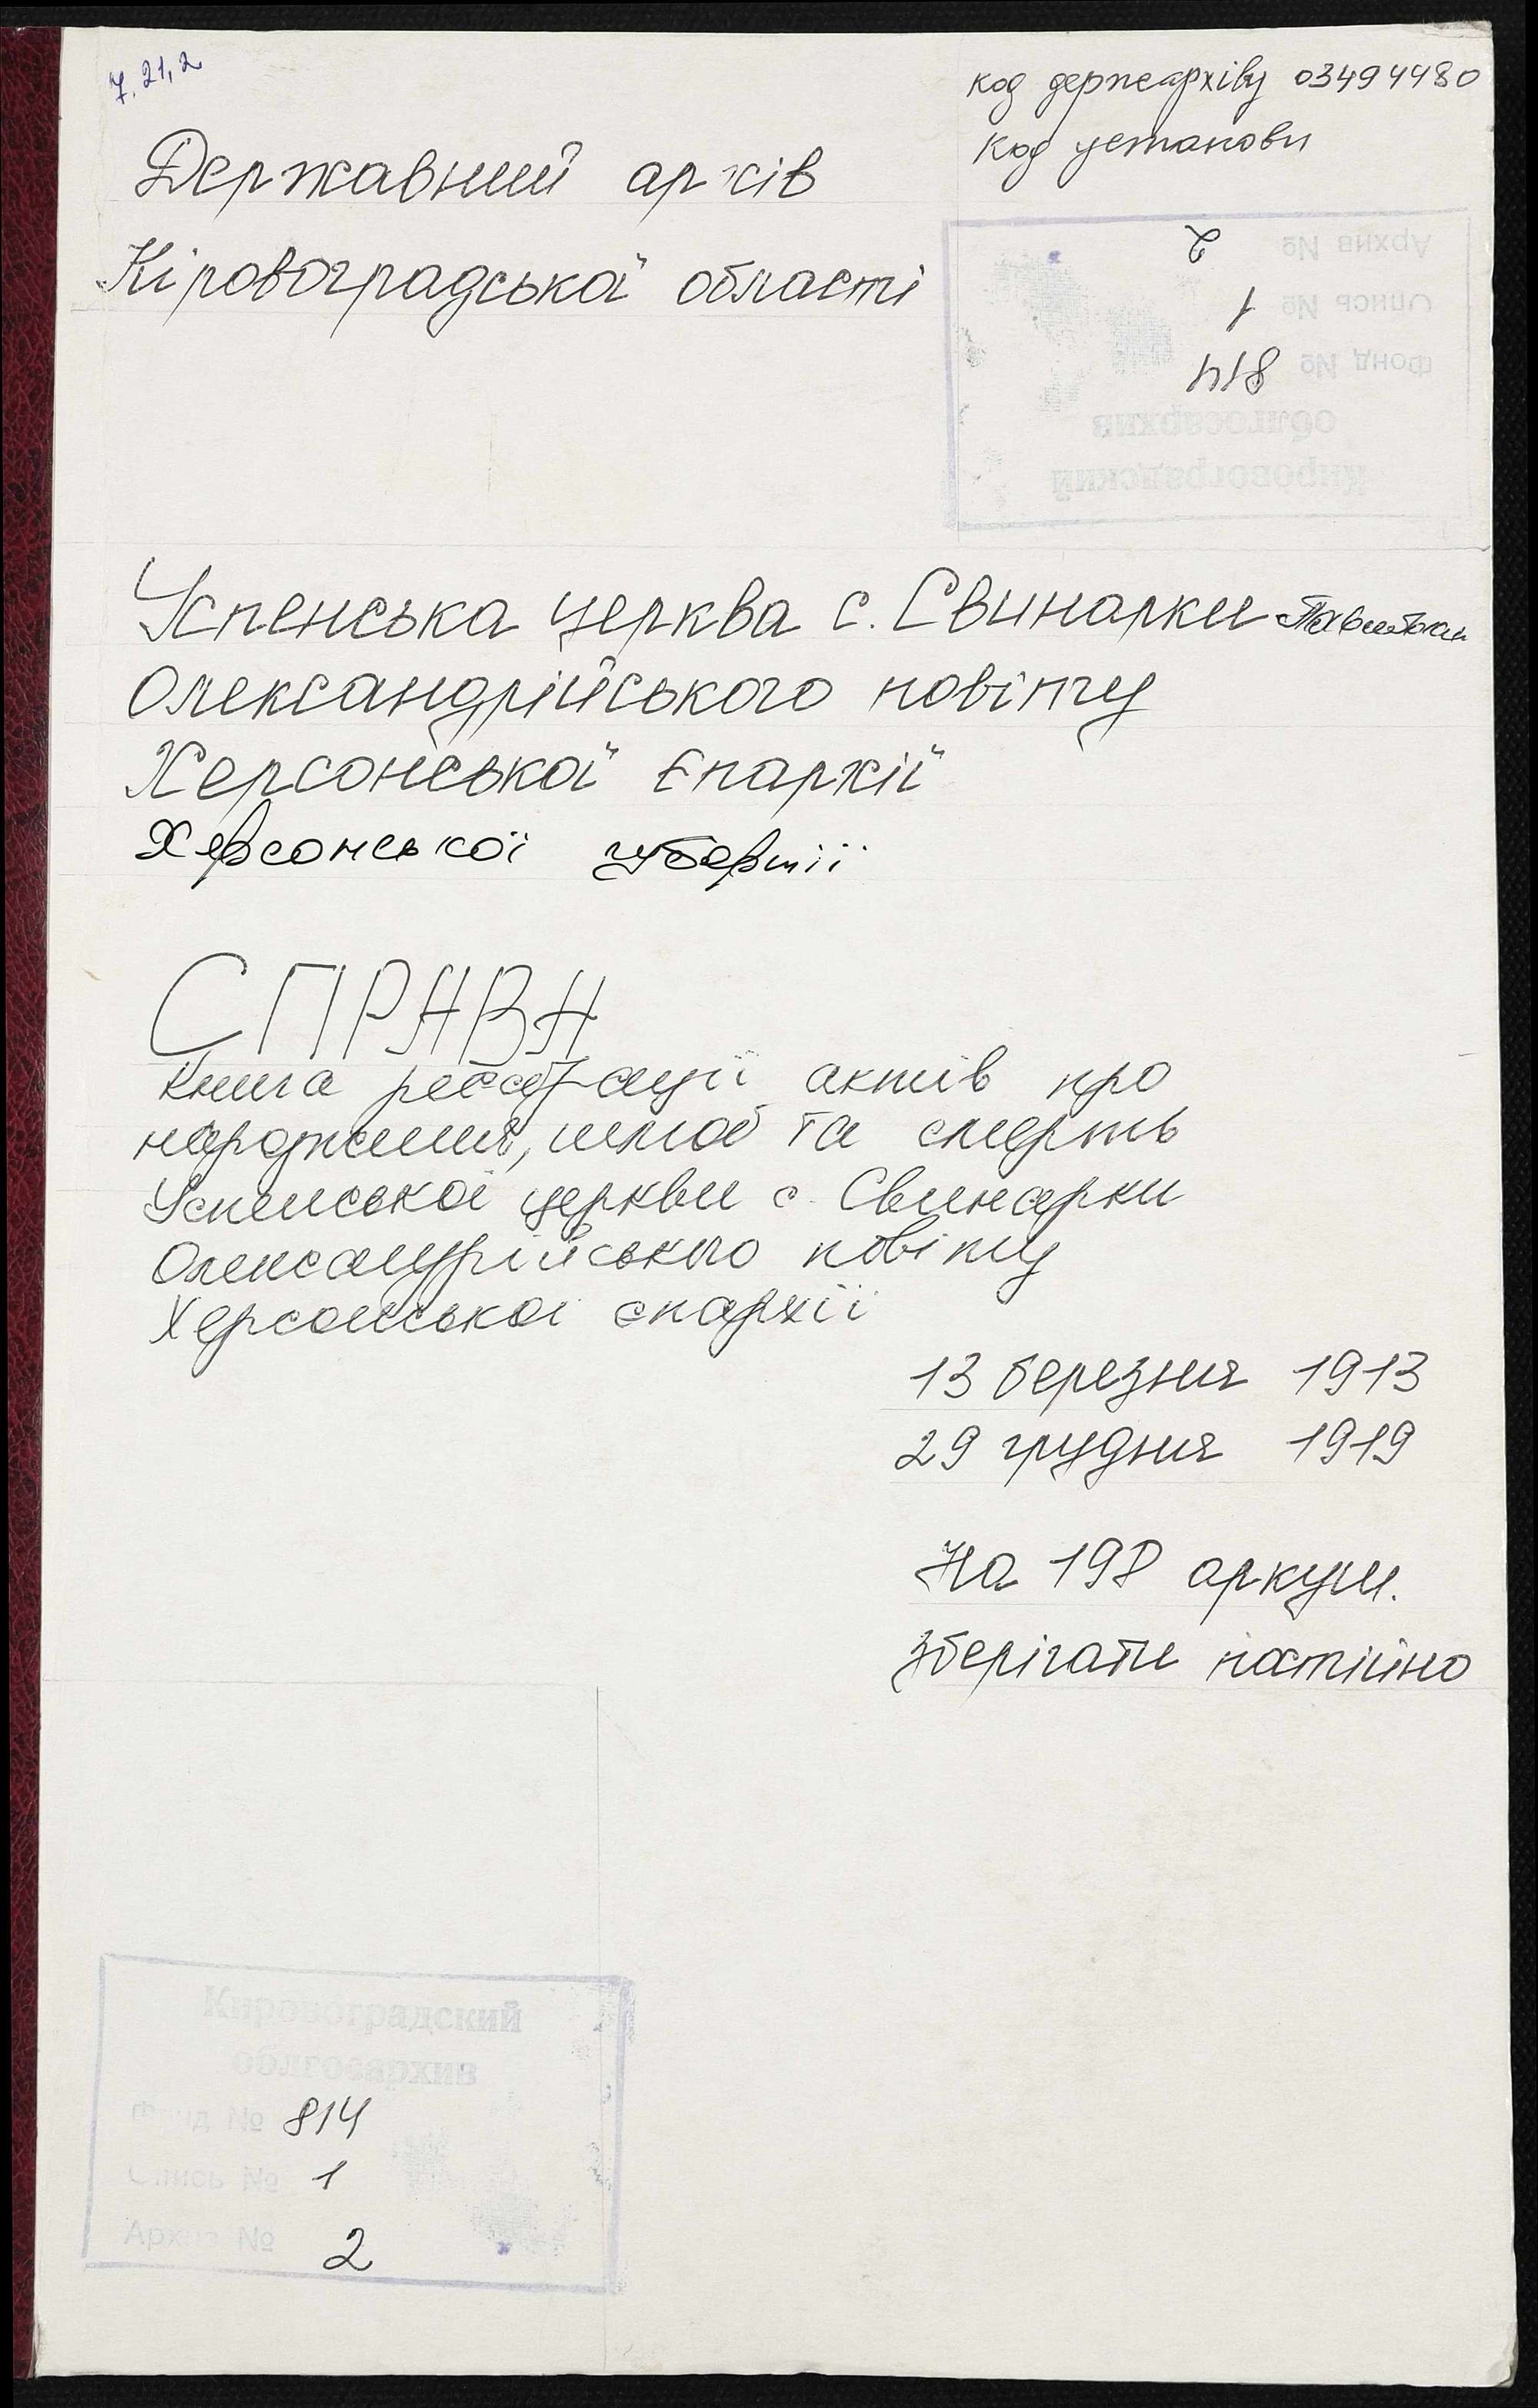 7.21,2
код держархіву 03494480
код установи
Державний архів
Кіровоградської області
Архив № 2
Опись № 1
Фонд № 814
облгосархив
Кировоградский
Успенська церква с. Свинарки
Олександрійського повіту
Херсонської єпархії
Херсонської губернії
СПРАВА
Книга реєстрації актів про
народження, шлюб та смерть
Успенської церкви с. Свинарки
Олександрійського повіту
Херсонської єпархії
13 березня 1913
29 грудня 1919
На 198 аркуш.
зберігати постійно
Кировоградский
облгосархив
Фонд № 814
Опись № 1
Архив № 2